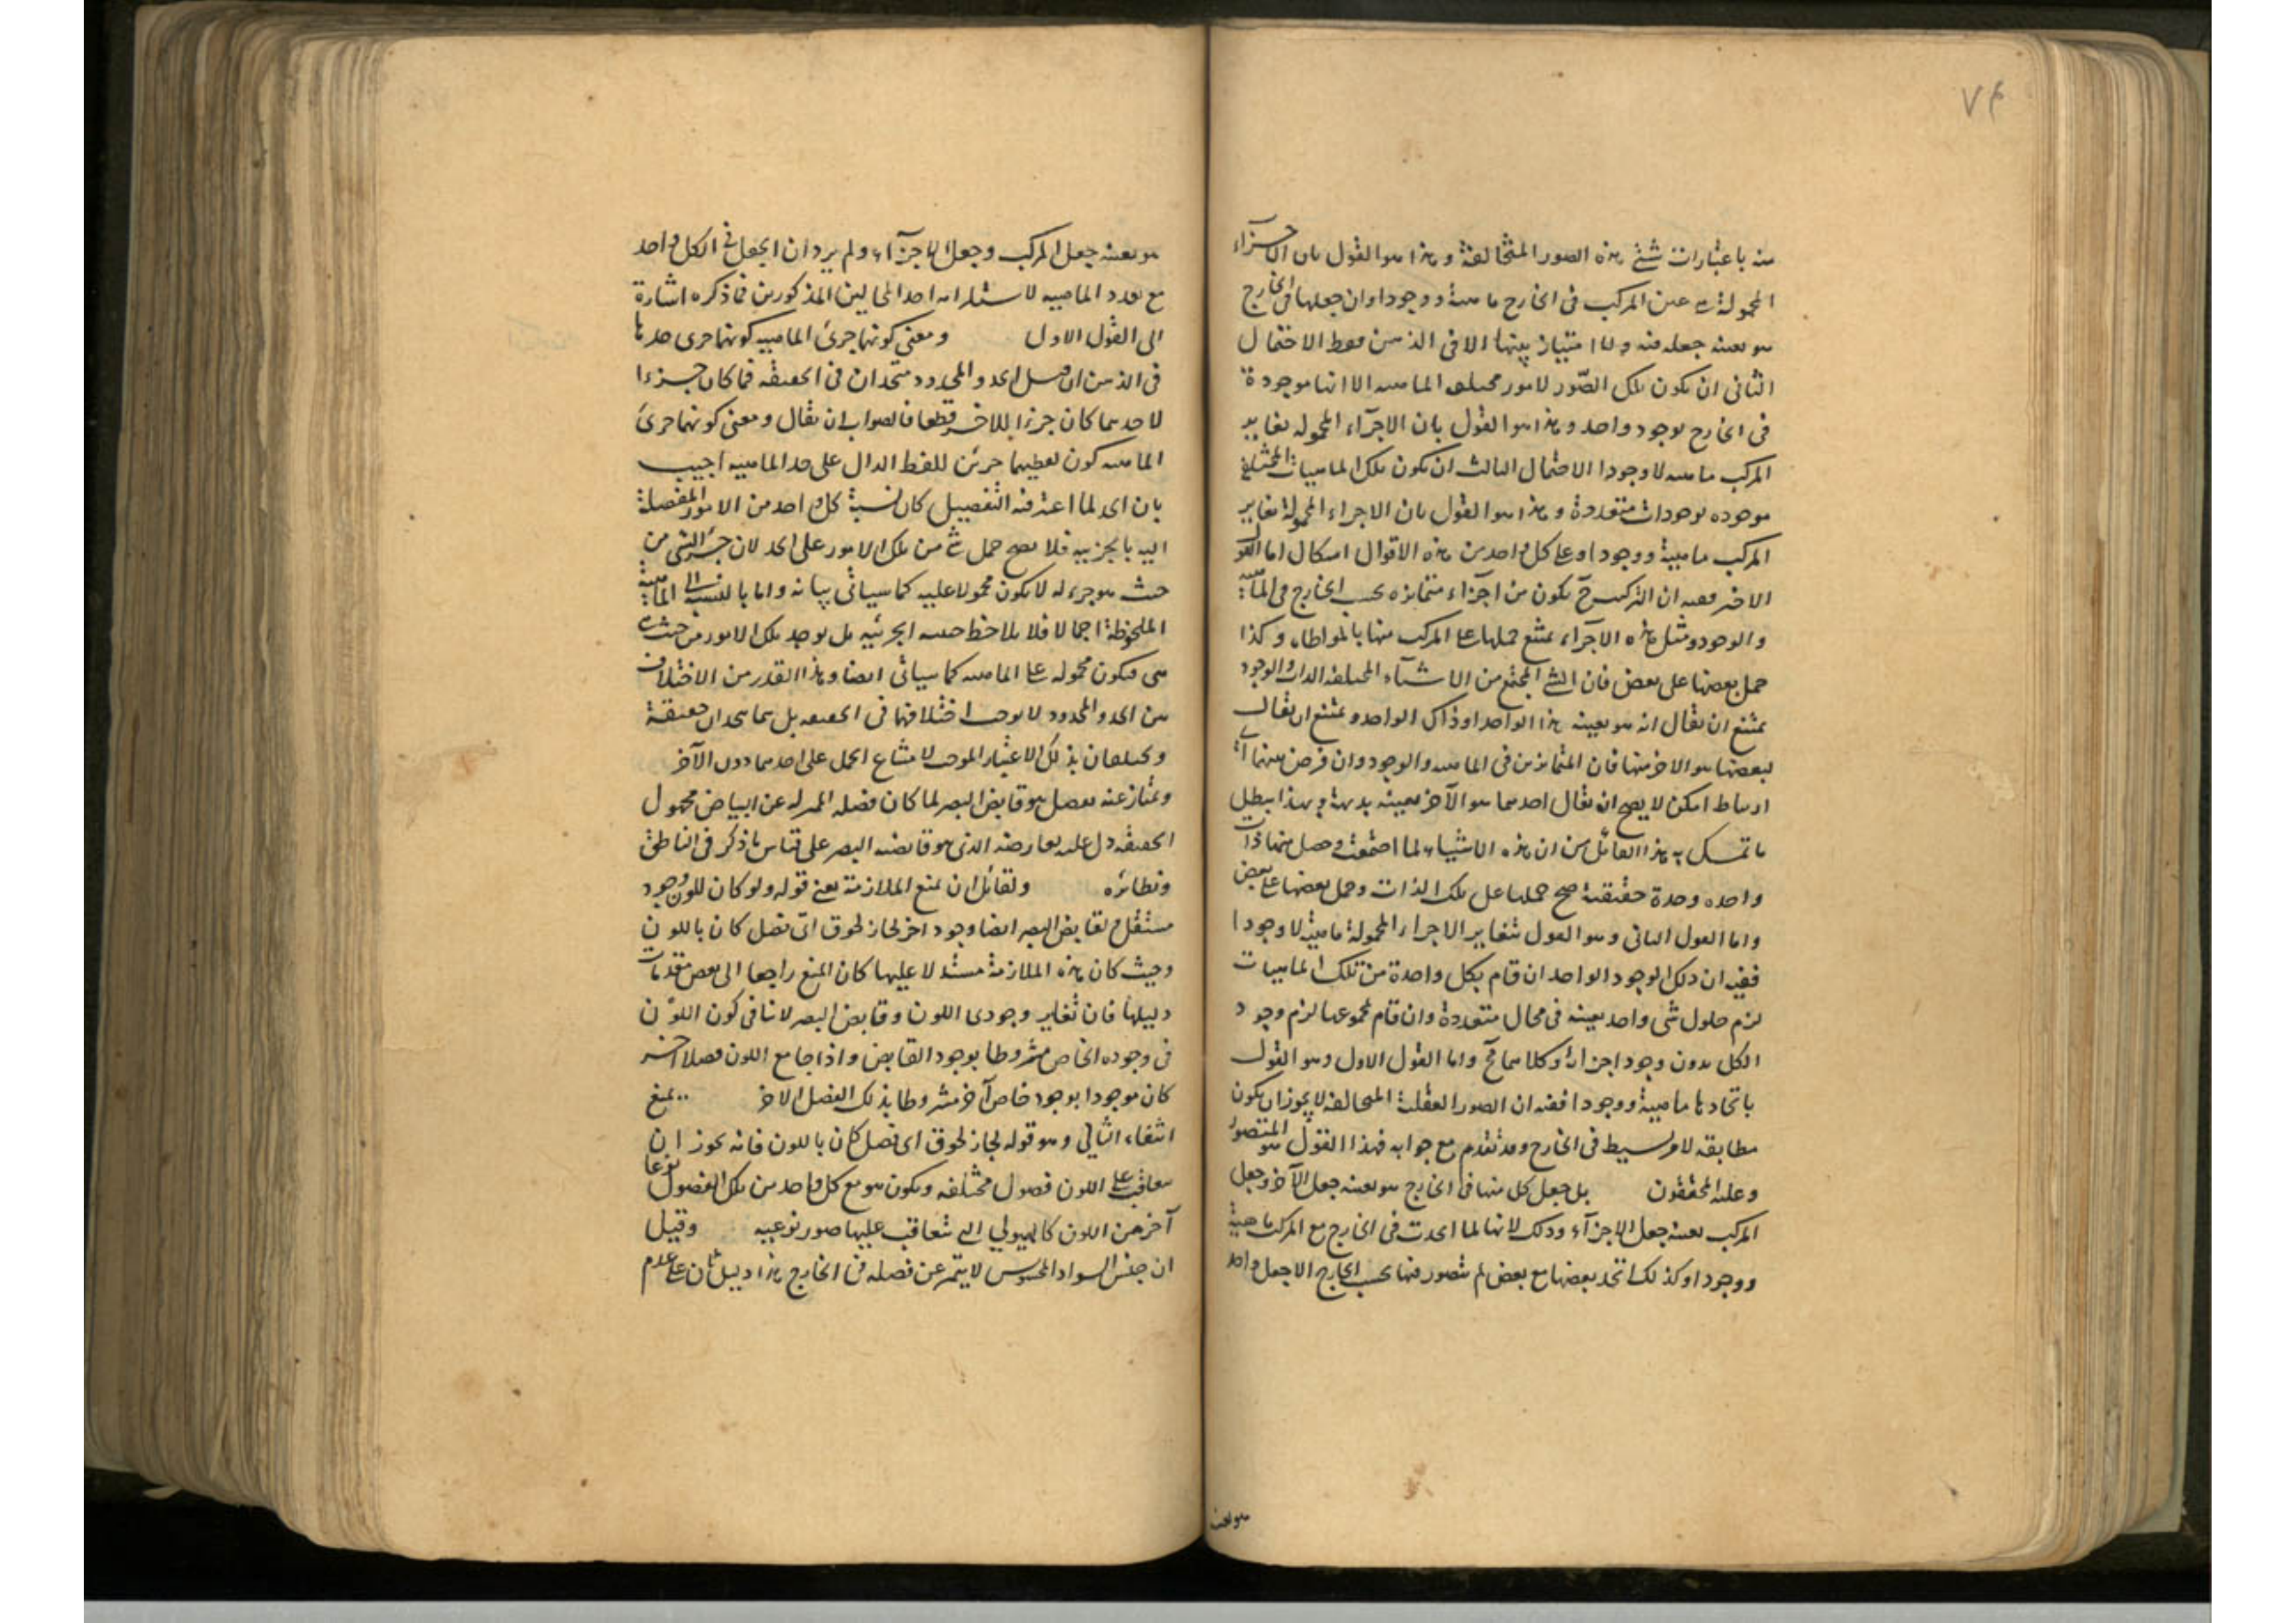 ٧٤
منه باعتبارات شتى هذه الصور المتخالفة وهذا هو القول بان الاجزاء
المحمولة هي عين المركب في الخارج ماهية ووجودا وان جعلها في الخارج
هو بعينه جعله فيه ولا امتياز بينها الا في الذهن فقط الاحتمال
الثاني ان يكون تلك الصور لامور مختلفه الماهيه الا انها موجودة
في الخارج بوجود واحد وهذا هو القول بان الاجزآء المحموله تغاير
المركب ماهيه لا وجودا الاحتمال الثالث ان يكون تلك الماهيات المختلفة
موجوده بوجودات متعددة وهذا هو القول بان الاجزاء المحمولة تغاير
المركب ماهية ووجودا وعلى كل واحد من هذه الاقوال اشكال اما القول
الاخير ففيه ان التركيب ح يكون من اجزاء متمايزه بحسب الخارج في الماهية
والوجود ومثل هذه الاجزاء يمتنع حملها على المركب منها بالمواطاه وكذا
حمل بعضها على بعض فان الشئ المجتمع من الاشيآء المختلفه الذات والوجود
يمتنع ان يقال انه هو بعينه هذا الواحد او ذاك الواحد ويمتنع ان يقال
لبعضها هو الاخر منها فان المتمايزين في الماهيه والوجود وان فرض بينهما اى
ارتباط امكن لا يصح ان يقال احدهما هو الآخر بعينه بديهة وبهذا يبطل
ما تمسك به هذا القائل من ان هذه الاشياء لما اجتمعت وحصل منها ذات
واحده وحدة حقيقية صح حملها على تلك الذات وحمل بعضها على بعض
واما القول الثاني وهو القول بتغاير الاجزاء المحمولة ماهية لا وجودا
ففيه ان ذلك الوجود الواحد ان قام بكل واحدة من تلك الماهيات
لزم حلول شئ واحد بعينه في محال متعددة وان قام بمجموعها لزم وجود
الكل بدون وجود اجزائه وكلاهما مح واما القول الاول وهو القول
باتحادها ماهية ووجودا ففيه ان الصور العقلية المتخالفه لا يجوز ان يكون
مطابقه لامر بسيط في الخارج وقد تقدم مع جوابه فهذا القول هو المتصور
وعليه المحققون بل جعل كل منها في الخارج هو بعينه جعل الآخر وجعل
المركب بعينه جعل الاجزآء وذلك لانها لما اتحدت في الخارج مع المركب ماهية
ووجودا وكذلك اتحد بعضها مع بعض لم يتصور فيها بحسب الخارج الا جعل واحد
هو بعينه جعل المركب وجعل الاجزآء ولم يرد ان الجعل في الكل واحد
مع تعدد الماهيه لاستلزامه احد المحالين المذكورين فما ذكره اشارة
الى القول الاول ومعنى كونهما جزئى الماهيه كونهما جزئى حدها
في الذهن ان قيل الحد والمحدود متحدان في الحقيقه فما كان جزءا
لاحدهما كان جزءا للاخر قطعا فالصواب ان يقال ومعنى كونهما جزئى
الماهيه كون لفظيهما جزئين للفظ الدال على حد الماهيه اجيب
بان الحد لما اعتبر فيه التفصيل كان نسبة كل واحد من الامور المفصلة
اليه بالجزئيه فلا يصح حمل شئ من تلك الامور على الحد لان جزء الشئ من
حيث هو جزء له لا يكون محمولا عليه كما سيأتي بيانه واما بالنسبة الى الماهية
الملحوظة اجمالا فلا يلاحظ حينئذ الجزئيه بل يوجد تلك الامور من حيث
هي فيكون محموله على الماهيه كما سيأتي ايضا وهذا القدر من الاختلاف
بين الحد والمحدود لا يوجب اختلافهما في الحقيقه بل هما متحدان حقيقة
ومختلفان بذلك الاعتبار الموجب لامتناع الحمل على احدهما دون الآخر
ويمتاز عنه بفصل هو قابض البصر لما كان فصله المميز له عن البياض مجهول
الحقيقه دل عليه بعارضه الذي هو قابضيه البصر على قياس ما ذكر في الناطق
ونظائره ولقائل ان يمنع الملازمة يعني قوله ولو كان للون وجود
مستقل ولقابض البصر ايضا وجود اخر لجاز لحوق اى فصل كان باللون
وحيث كان هذه الملازمة مستدلا عليها كان المنع راجعا الى بعض مقدمات
دليلها فان تغاير وجودى اللون وقابض البصر لا ينافي كون اللون
في وجوده الخاص مشروطا بوجود القابض واذا جامع اللون فصلا اخر
كان موجودا بوجود خاص آخر مشروطا بذلك الفصل الاخر يمنع
انتفاء التالي وهو قوله لجاز لحوق اى فصل كان باللون فانه يجوز ان
يتعاقب على اللون فصول مختلفه ويكون هو مع كل واحد من تلك الفصول نوعا
آخر من اللون كالهيولي التي تتعاقب عليها صور نوعيه وقيل
ان جنس السواد المحسوس لا يتميز عن فصله في الخارج هذا دليل ثان على عدم